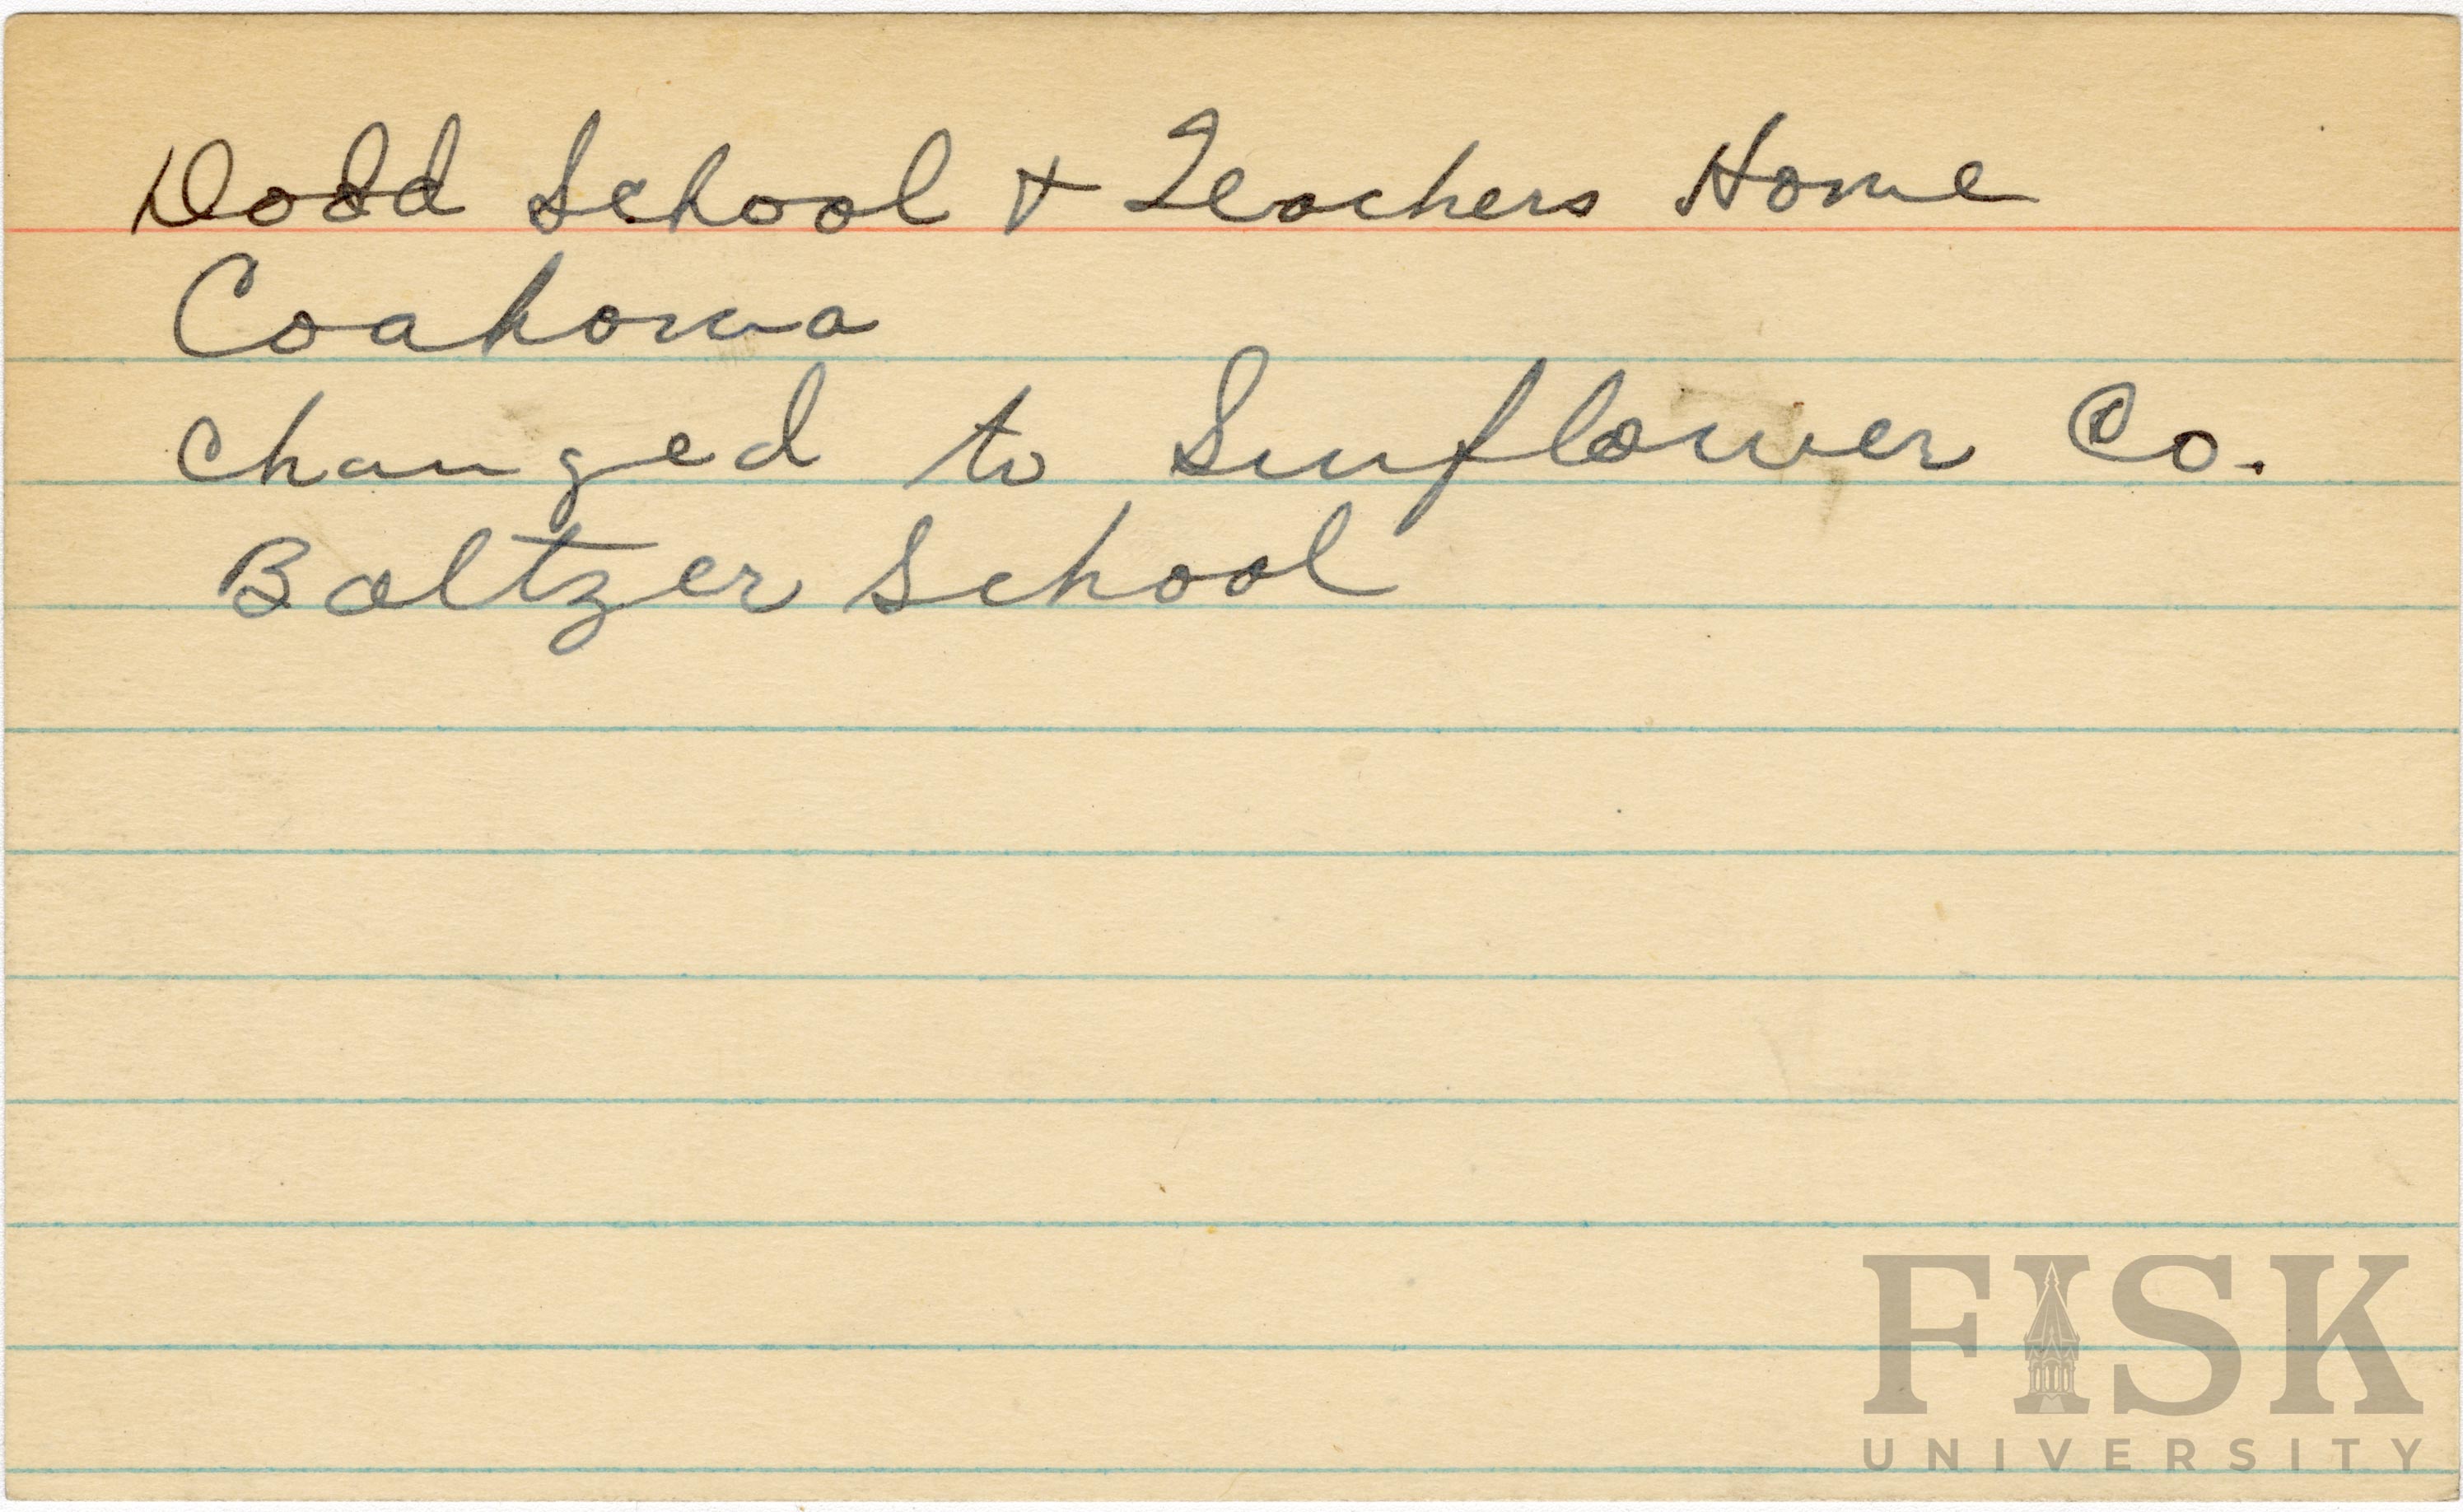 Dodd School & Teachers Home
Coahoma
changed to Sunflower Co.
Baltzer School
FISK
UNIVERSITY